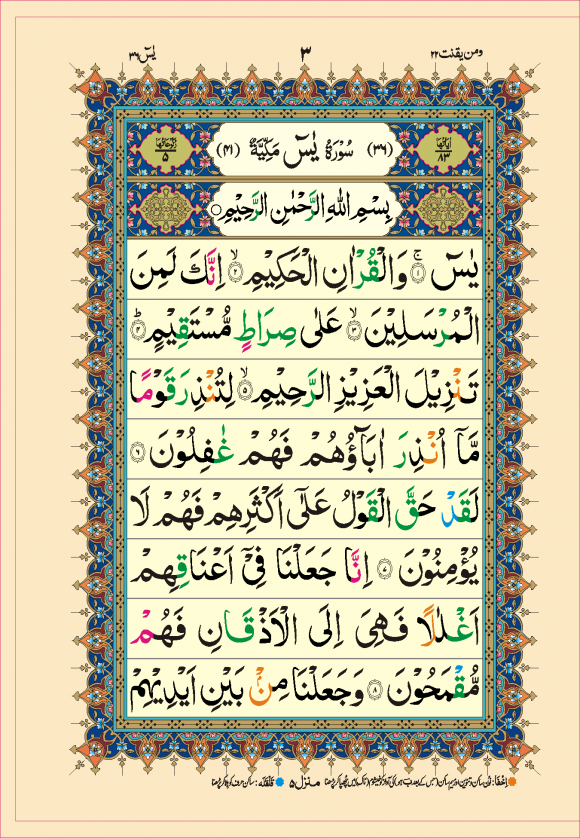 ومن یقنت ۲۲
۳
یٰسٓ ۳۶
اٰیاتها ۸۳
(۳۶) سُوْرَةُ یٰسٓ مَكِّيَّةٌ (۴۱)
رکوعاتها ۵
بِسْمِ اللّٰهِ الرَّحْمٰنِ الرَّحِيْمِ
يٰسٓ ۚ‏﴿۱﴾ وَالْقُرْاٰنِ الْحَكِيْمِ ۙ‏﴿۲﴾ اِنَّكَ لَمِنَ
الْمُرْسَلِيْنَ ۙ‏﴿۳﴾ عَلٰى صِرَاطٍ مُّسْتَقِيْمٍ ؕ‏﴿۴﴾
تَنْزِيْلَ الْعَزِيْزِ الرَّحِيْمِ ۙ‏﴿۵﴾ لِتُنْذِرَ قَوْمًا
مَّاۤ اُنْذِرَ اٰبَآؤُهُمْ فَهُمْ غٰفِلُوْنَ ﴿۶﴾
لَقَدْ حَقَّ الْقَوْلُ عَلٰٓى اَكْثَرِهِمْ فَهُمْ لَا
يُؤْمِنُوْنَ ﴿۷﴾ اِنَّا جَعَلْنَا فِىْۤ اَعْنَاقِهِمْ
اَغْلٰلًا فَهِىَ اِلَى الْاَذْقَانِ فَهُمْ
مُّقْمَحُوْنَ ﴿۸﴾ وَجَعَلْنَا مِنْۢ بَيْنِ اَيْدِيْهِمْ
اخفا:
منزل ۵
قلقله: ساکن حرف کو ہلا کر پڑھنا